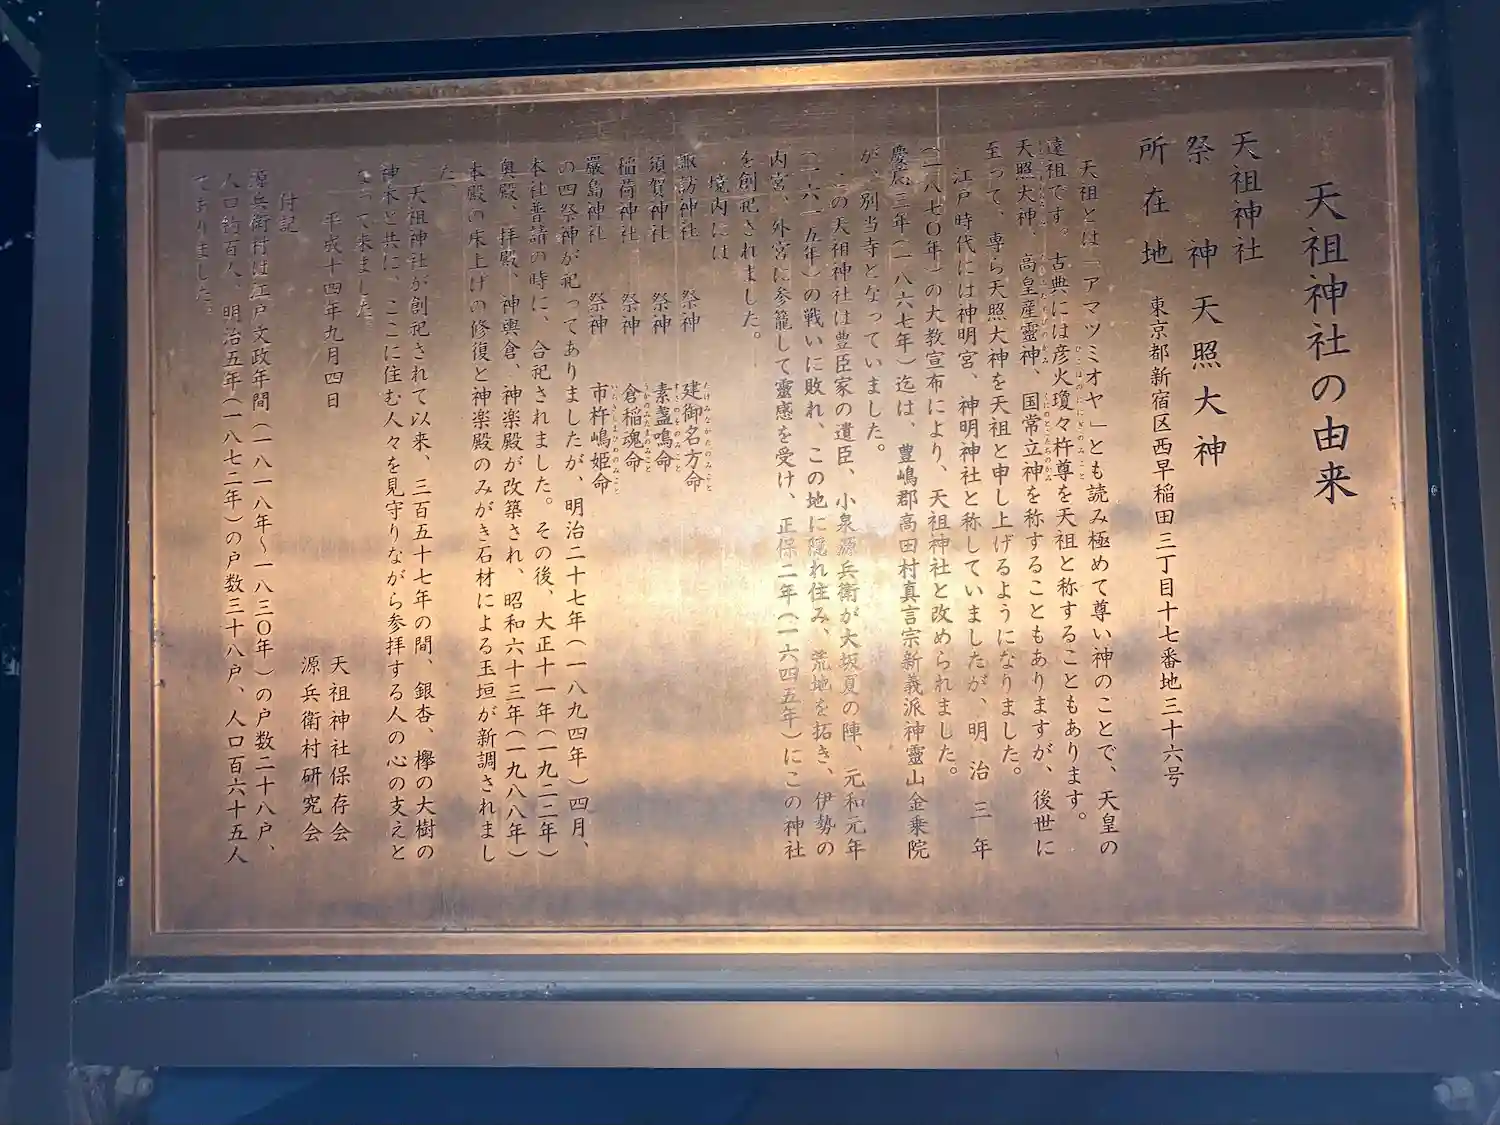 天祖神社の由来
天祖神社
祭神 天照大神
所在地 東京都新宿区西早稲田三丁目十七番地三十六号
天祖とは「アマツミオヤ」とも読み極めて尊い神のことで、天皇の
遠祖です。古典には彦火瓊々杵尊を天祖と称することもあります。
天照大神、高皇産靈神、国常立神を称することもありますが、後世に
至って、専ら天照大神を天祖と申し上げるようになりました。
江戸時代には神明宮、神明神社と称していましたが、明治三年
(一八七〇年)の大教宣布により、天祖神社と改められました。
慶應三年(一八六七年)迄は、豊嶋郡高田村真言宗新義派神靈山金乗院
が、別当寺となっていました。
この天祖神社は豊臣家の遺臣、小泉源兵衛が大坂夏の陣、元和元年
(一六一五年)の戦いに敗れ、この地に隠れ住み、荒地を拓き、伊勢の
内宮、外宮に参籠して靈感を受け、正保二年(一六四五年)にこの神社
を創祀されました。
境内には
諏訪神社 祭神 建御名方命
須賀神社 祭神 素盞鳴命
稲荷神社 祭神 倉稲魂命
厳島神社 祭神 市杵嶋姫命
の四祭神が祀ってありましたが、明治二十七年(一八九四年)四月、
本社普請の時に、合祀されました。その後、大正十一年(一九二二年)
奥殿、拝殿、神輿倉、神楽殿が改築され、昭和六十三年(一九八八年)
本殿の床上げの修復と神楽殿のみがき石材による玉垣が新調されまし
た。
天祖神社が創祀されて以来、三百五十七年の間、銀杏、欅の大樹の
神木と共に、ここに住む人々を見守りながら参拝する人の心の支えと
なって来ました。
平成十四年九月四日
天祖神社保存会
源兵衛村研究会
付記
源兵衛村は江戸文政年間(一八一八年～一八三〇年)の戸数二十八戸、
人口約百人、明治五年(一八七二年)の戸数三十八戸、人口百六十五人
でありました。